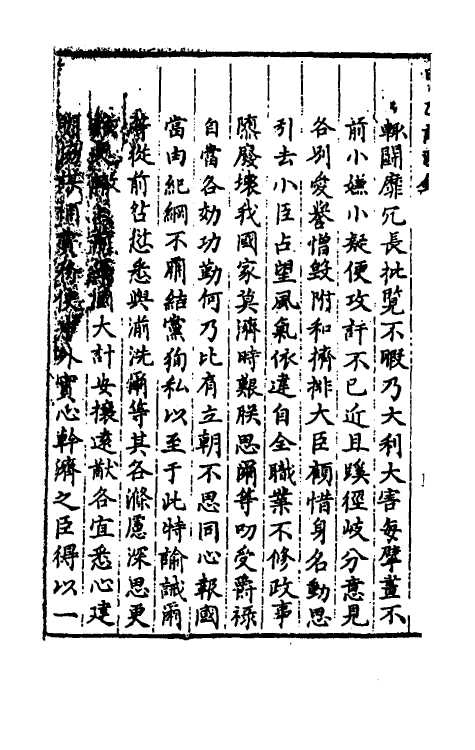 輒闢靡冗長批覧不暇乃大利大害每擘畫不
前小嫌小疑便攻訐不已近且蹊徑岐分意見
各別愛譽憎毀附和擠排大臣顧惜身名動思
引去小臣占望風氣依違自全職業不修政事
隳廢壊我國家莫濟時艱朕思爾等叨受爵祿
自當各効功勤何乃比有立朝不思同心報國
當由紀綱不肅結黨狥私以至于此特諭誡爾
等從前愆悉與湔洗爾等其各滌慮深思更
大計安攘遠猷各宜悉心建
外實心幹濟之臣得以一